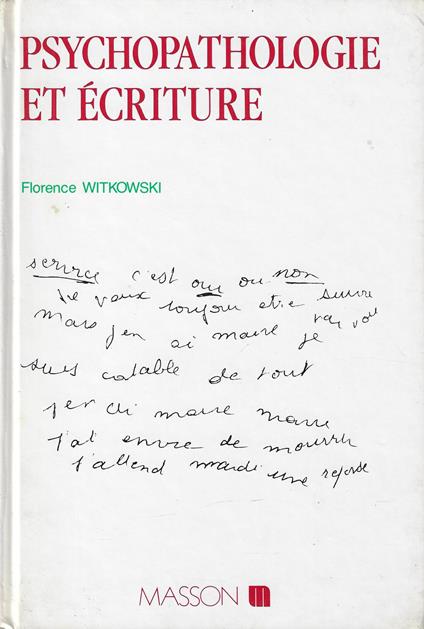 PSYCHOPATHOLOGIE
ET ÉCRITURE
Florence WITKOWSKI
service c'est oui ou non
je veux toujour etre suivre
mais j'en ai marre je
suis catable de tout
j'en ai marre marre
j'ai envre de mourrir
j'attend mardi une reponse
MASSON